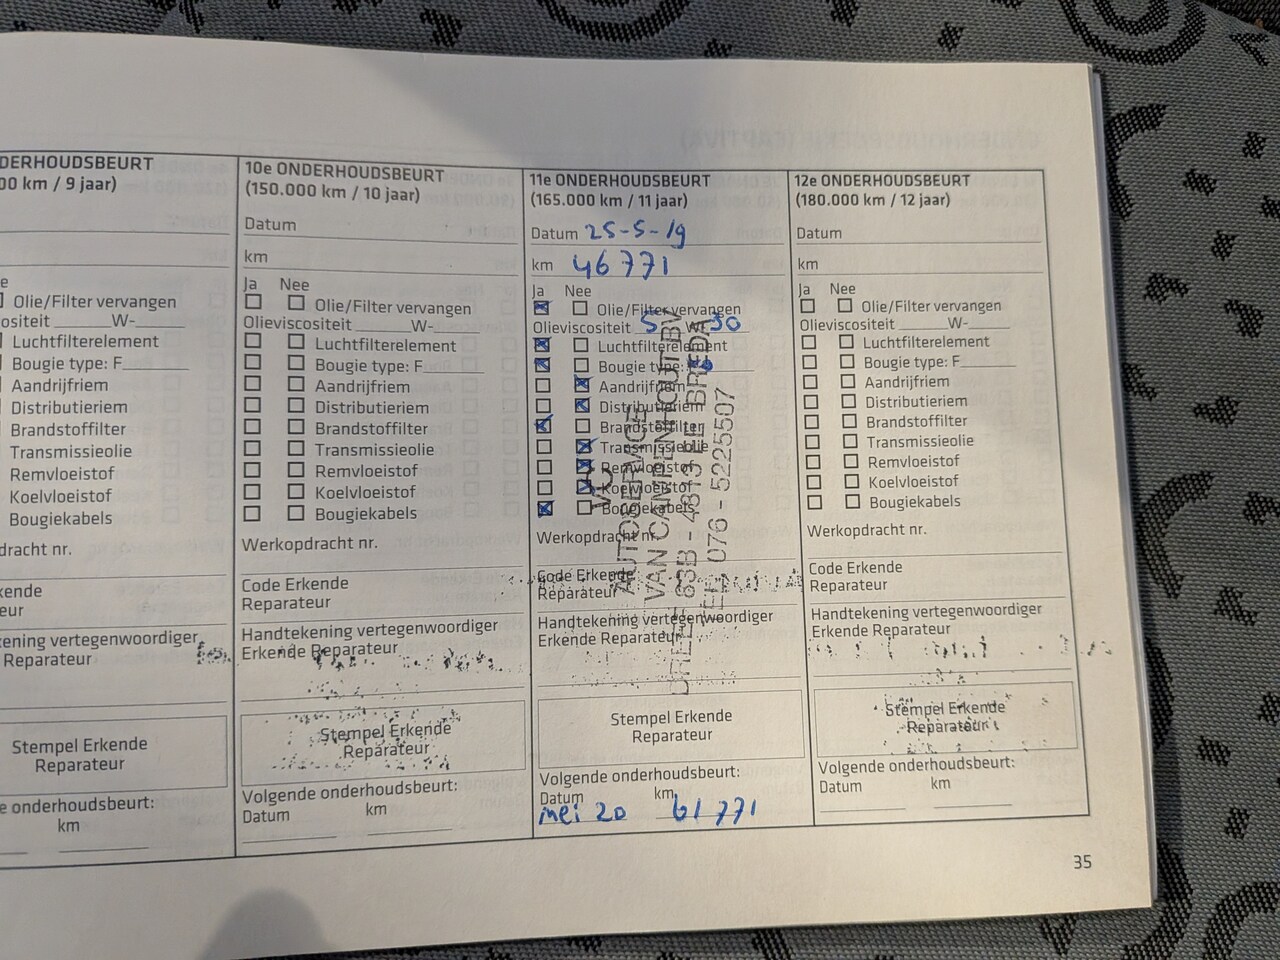 DERHOUDSBEURT
00 km / 9 jaar)
Olie/Filter vervangen
ositeit ______W-______
Luchtfilterelement
Bougie type: F________
Aandrijfriem
Distributieriem
Brandstoffilter
Transmissieolie
Remvloeistof
Koelvloeistof
Bougiekabels
dracht nr.
kende
eur
kening vertegenwoordiger
Reparateur
Stempel Erkende
Reparateur
e onderhoudsbeurt:
km
10e ONDERHOUDSBEURT
(150.000 km / 10 jaar)
Datum
km
Ja Nee
Olie/Filter vervangen
Olieviscositeit ______W-______
Luchtfilterelement
Bougie type: F________
Aandrijfriem
Distributieriem
Brandstoffilter
Transmissieolie
Remvloeistof
Koelvloeistof
Bougiekabels
Werkopdracht nr.
Code Erkende
Reparateur
Handtekening vertegenwoordiger
Erkende Reparateur
Stempel Erkende
Reparateur
Volgende onderhoudsbeurt:
Datum km
11e ONDERHOUDSBEURT
(165.000 km / 11 jaar)
Datum 25-5-19
km 46771
Ja Nee
Olie/Filter vervangen
Olieviscositeit 5 W 30
Luchtfilterelement
Bougie type:
Aandrijfriem
Distributieriem
Brandstoffilter
Transmissieolie
Remvloeistof
Koelvloeistof
Bougiekabels
Werkopdracht nr.
Code Erkende
Reparateur
Handtekening vertegenwoordiger
Erkende Reparateur
AUTOSERVICE
VAN CAMPENHOUT BV
63B - 4813 BREDA
076 - 5225507
Stempel Erkende
Reparateur
Volgende onderhoudsbeurt:
Datum km
mei 20 61771
12e ONDERHOUDSBEURT
(180.000 km / 12 jaar)
Datum
km
Ja Nee
Olie/Filter vervangen
Olieviscositeit ______W-______
Luchtfilterelement
Bougie type: F________
Aandrijfriem
Distributieriem
Brandstoffilter
Transmissieolie
Remvloeistof
Koelvloeistof
Bougiekabels
Werkopdracht nr.
Code Erkende
Reparateur
Handtekening vertegenwoordiger
Erkende Reparateur
Stempel Erkende
Reparateur
Volgende onderhoudsbeurt:
Datum km
35